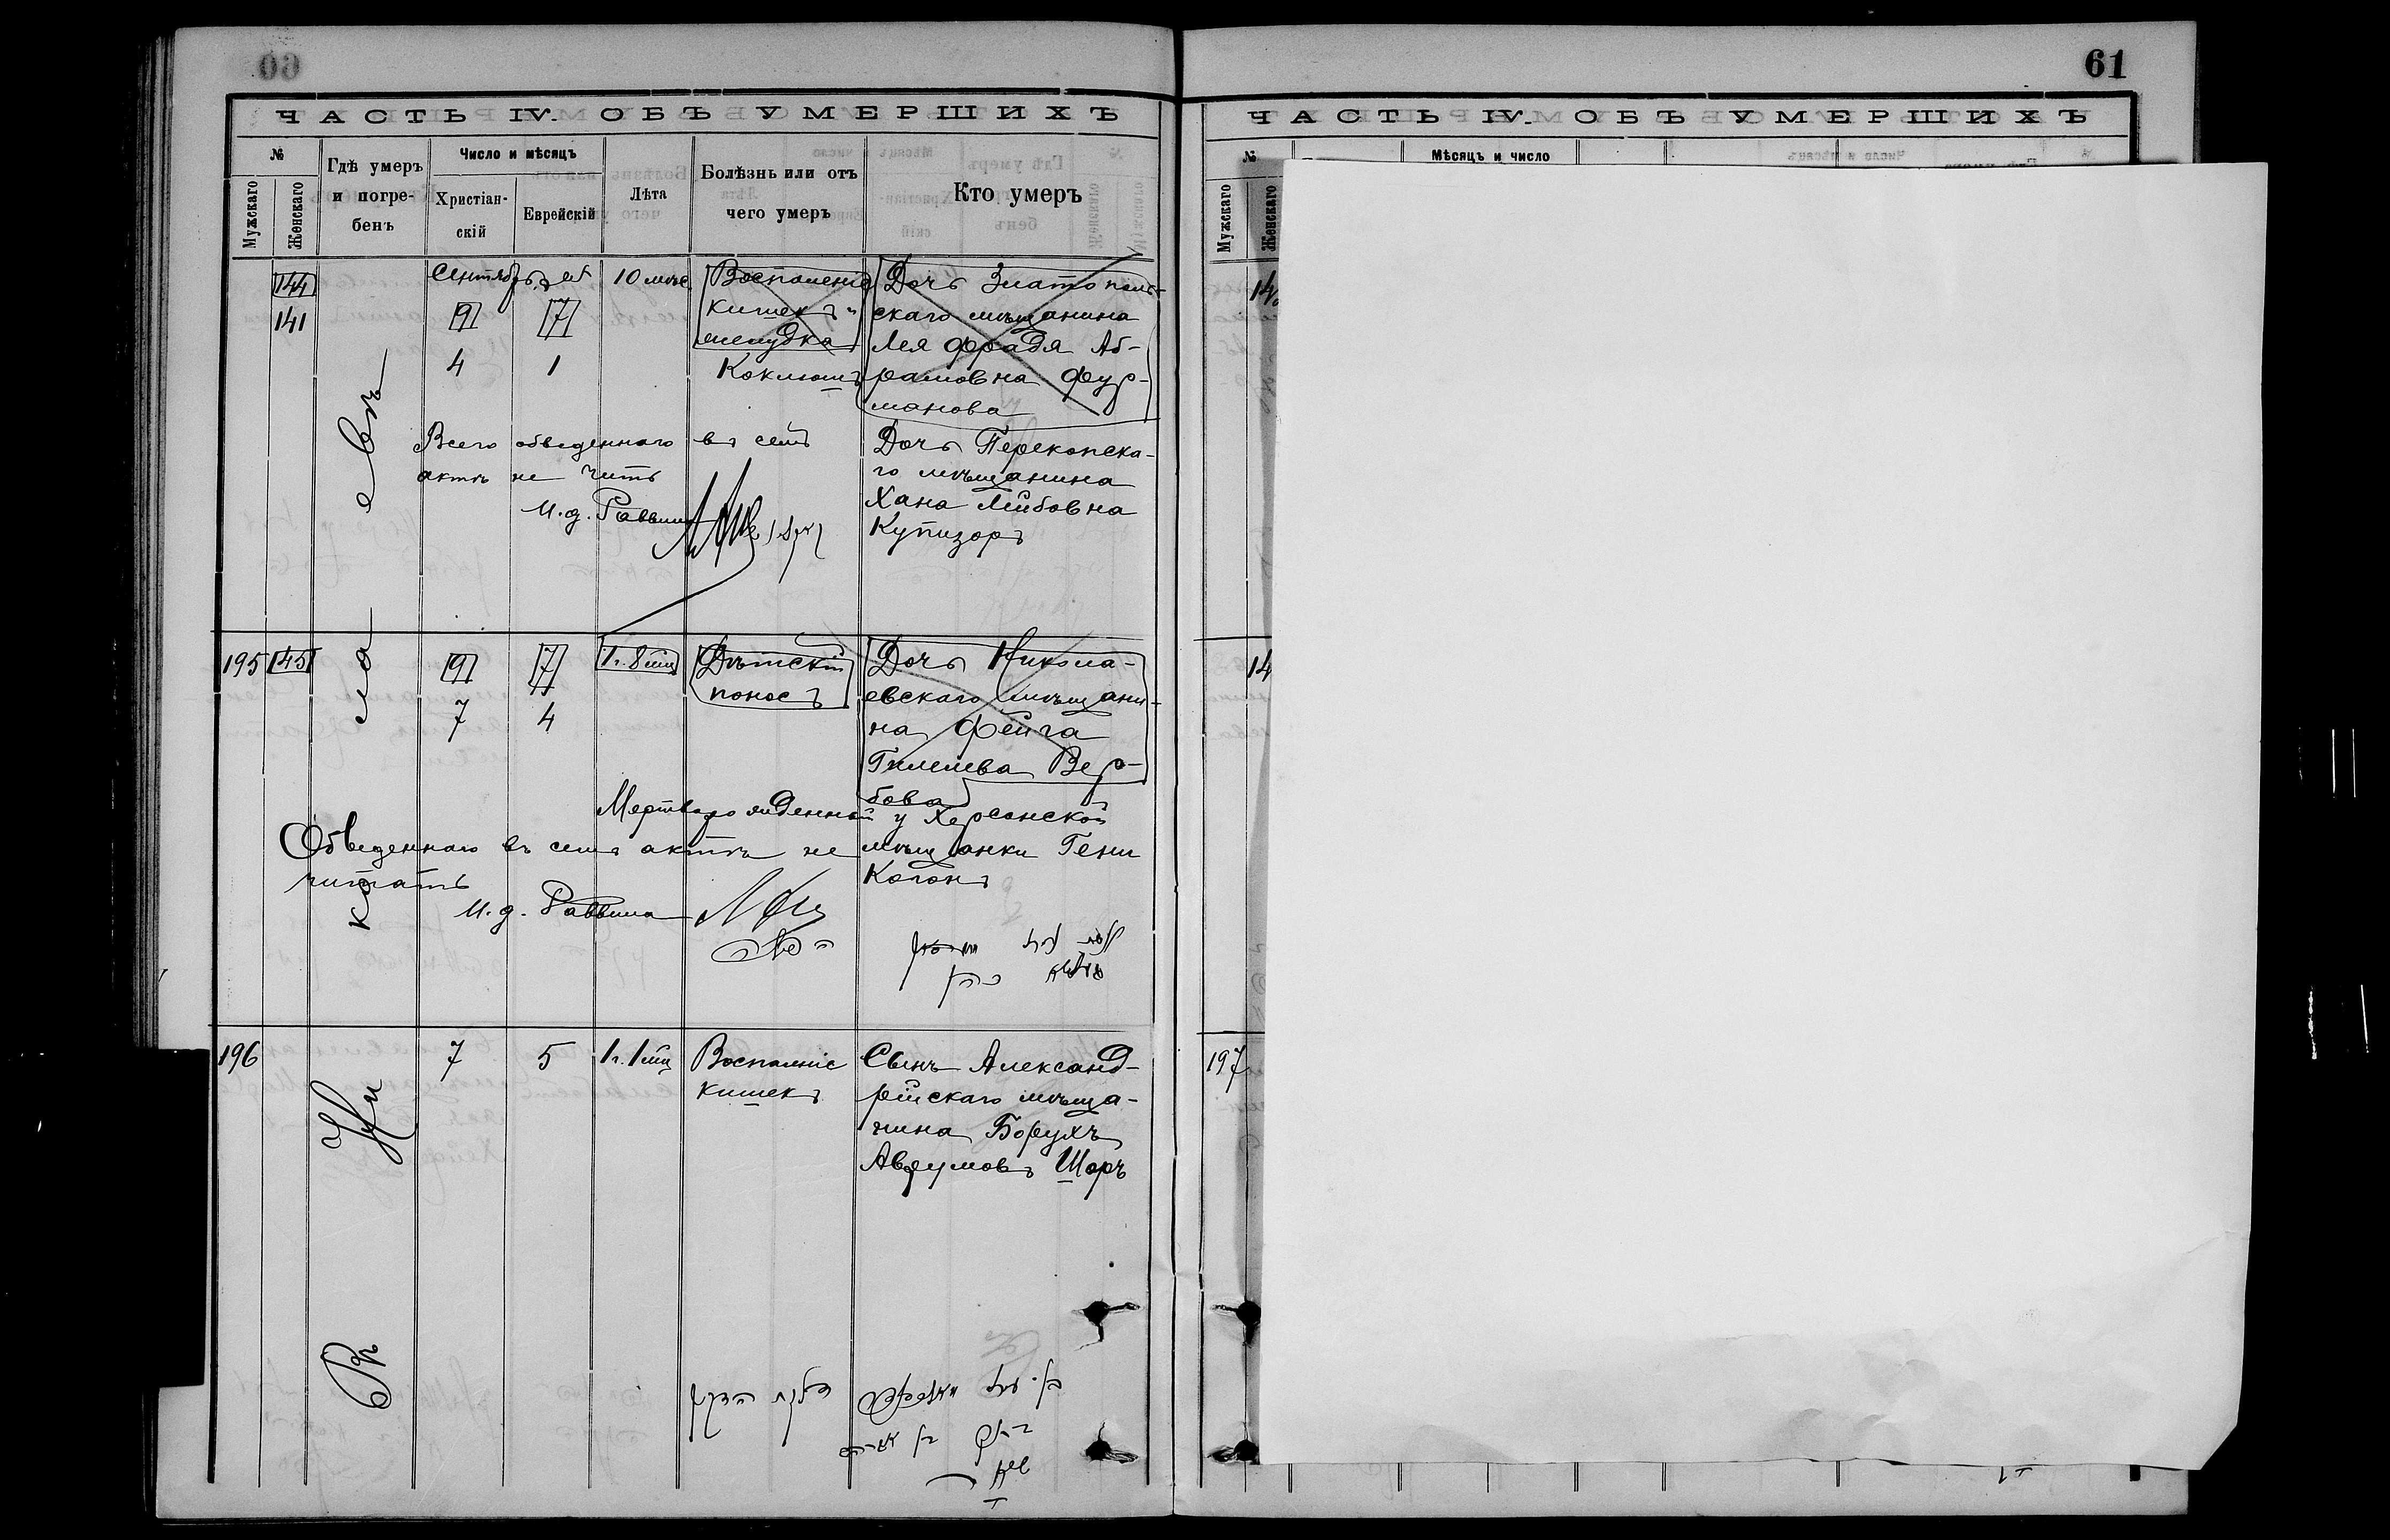 60
ЧАСТЬ IV. ОБЪ УМЕРШИХЪ
№
Мужскаго
Женскаго
Гдѣ умеръ
и погре-
бенъ
Число и мѣсяцъ
Христіан-
скій
Еврейскій
Лѣта
Болѣзнь или отъ
чего умеръ
Кто умеръ
144
141
Сентябрь
9
7
4
1
10 мѣс.
Воспаленіе
кишекъ и
желудка
Коклюшъ
Дочь Златополь-
скаго мѣщанина
Лея Фрадя Аб-
рамовна Фур-
манова
Всего обведеннаго въ семъ
актѣ не чит
И. д. Раввина
Дочь Перекопска-
го мѣщанина
Хана Лейбовна
Купизоръ
195
145
9
7
7
4
1 г. 8 мц
Дѣтскій
поносъ
Дочь Никола-
евскаго мѣщани-
на Фейга
Гилелева Вер-
бова
Мертворожденный у Херсонской
мѣщанки Гени
Коганъ
Обведеннаго въ семъ актѣ не
читать
И. д. Раввина
196
7
5
1 г. 1 мц
Воспаленіе
кишекъ
Сынъ Александ-
рійскаго мѣща-
нина Борухъ
Аврумовъ Шоръ
Въ
Ни
ко
ла
евѣ
61
ЧАСТЬ IV. ОБЪ УМЕРШИХЪ
№
Мужскаго
Женскаго
Мѣсяцъ и число
14
14
197